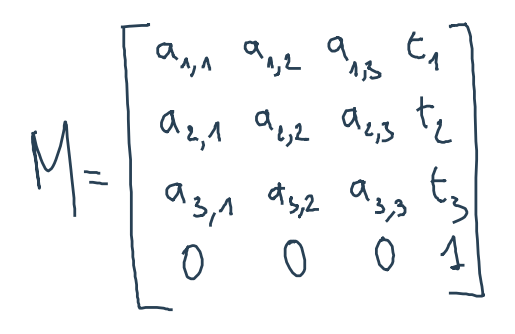 a₁,₁ a₁,₂ a₁,₃ t₁
a₂,₁ a₂,₂ a₂,₃ t₂
M=
a₃,₁ a₃,₂ a₃,₃ t₃
0 0 0 1